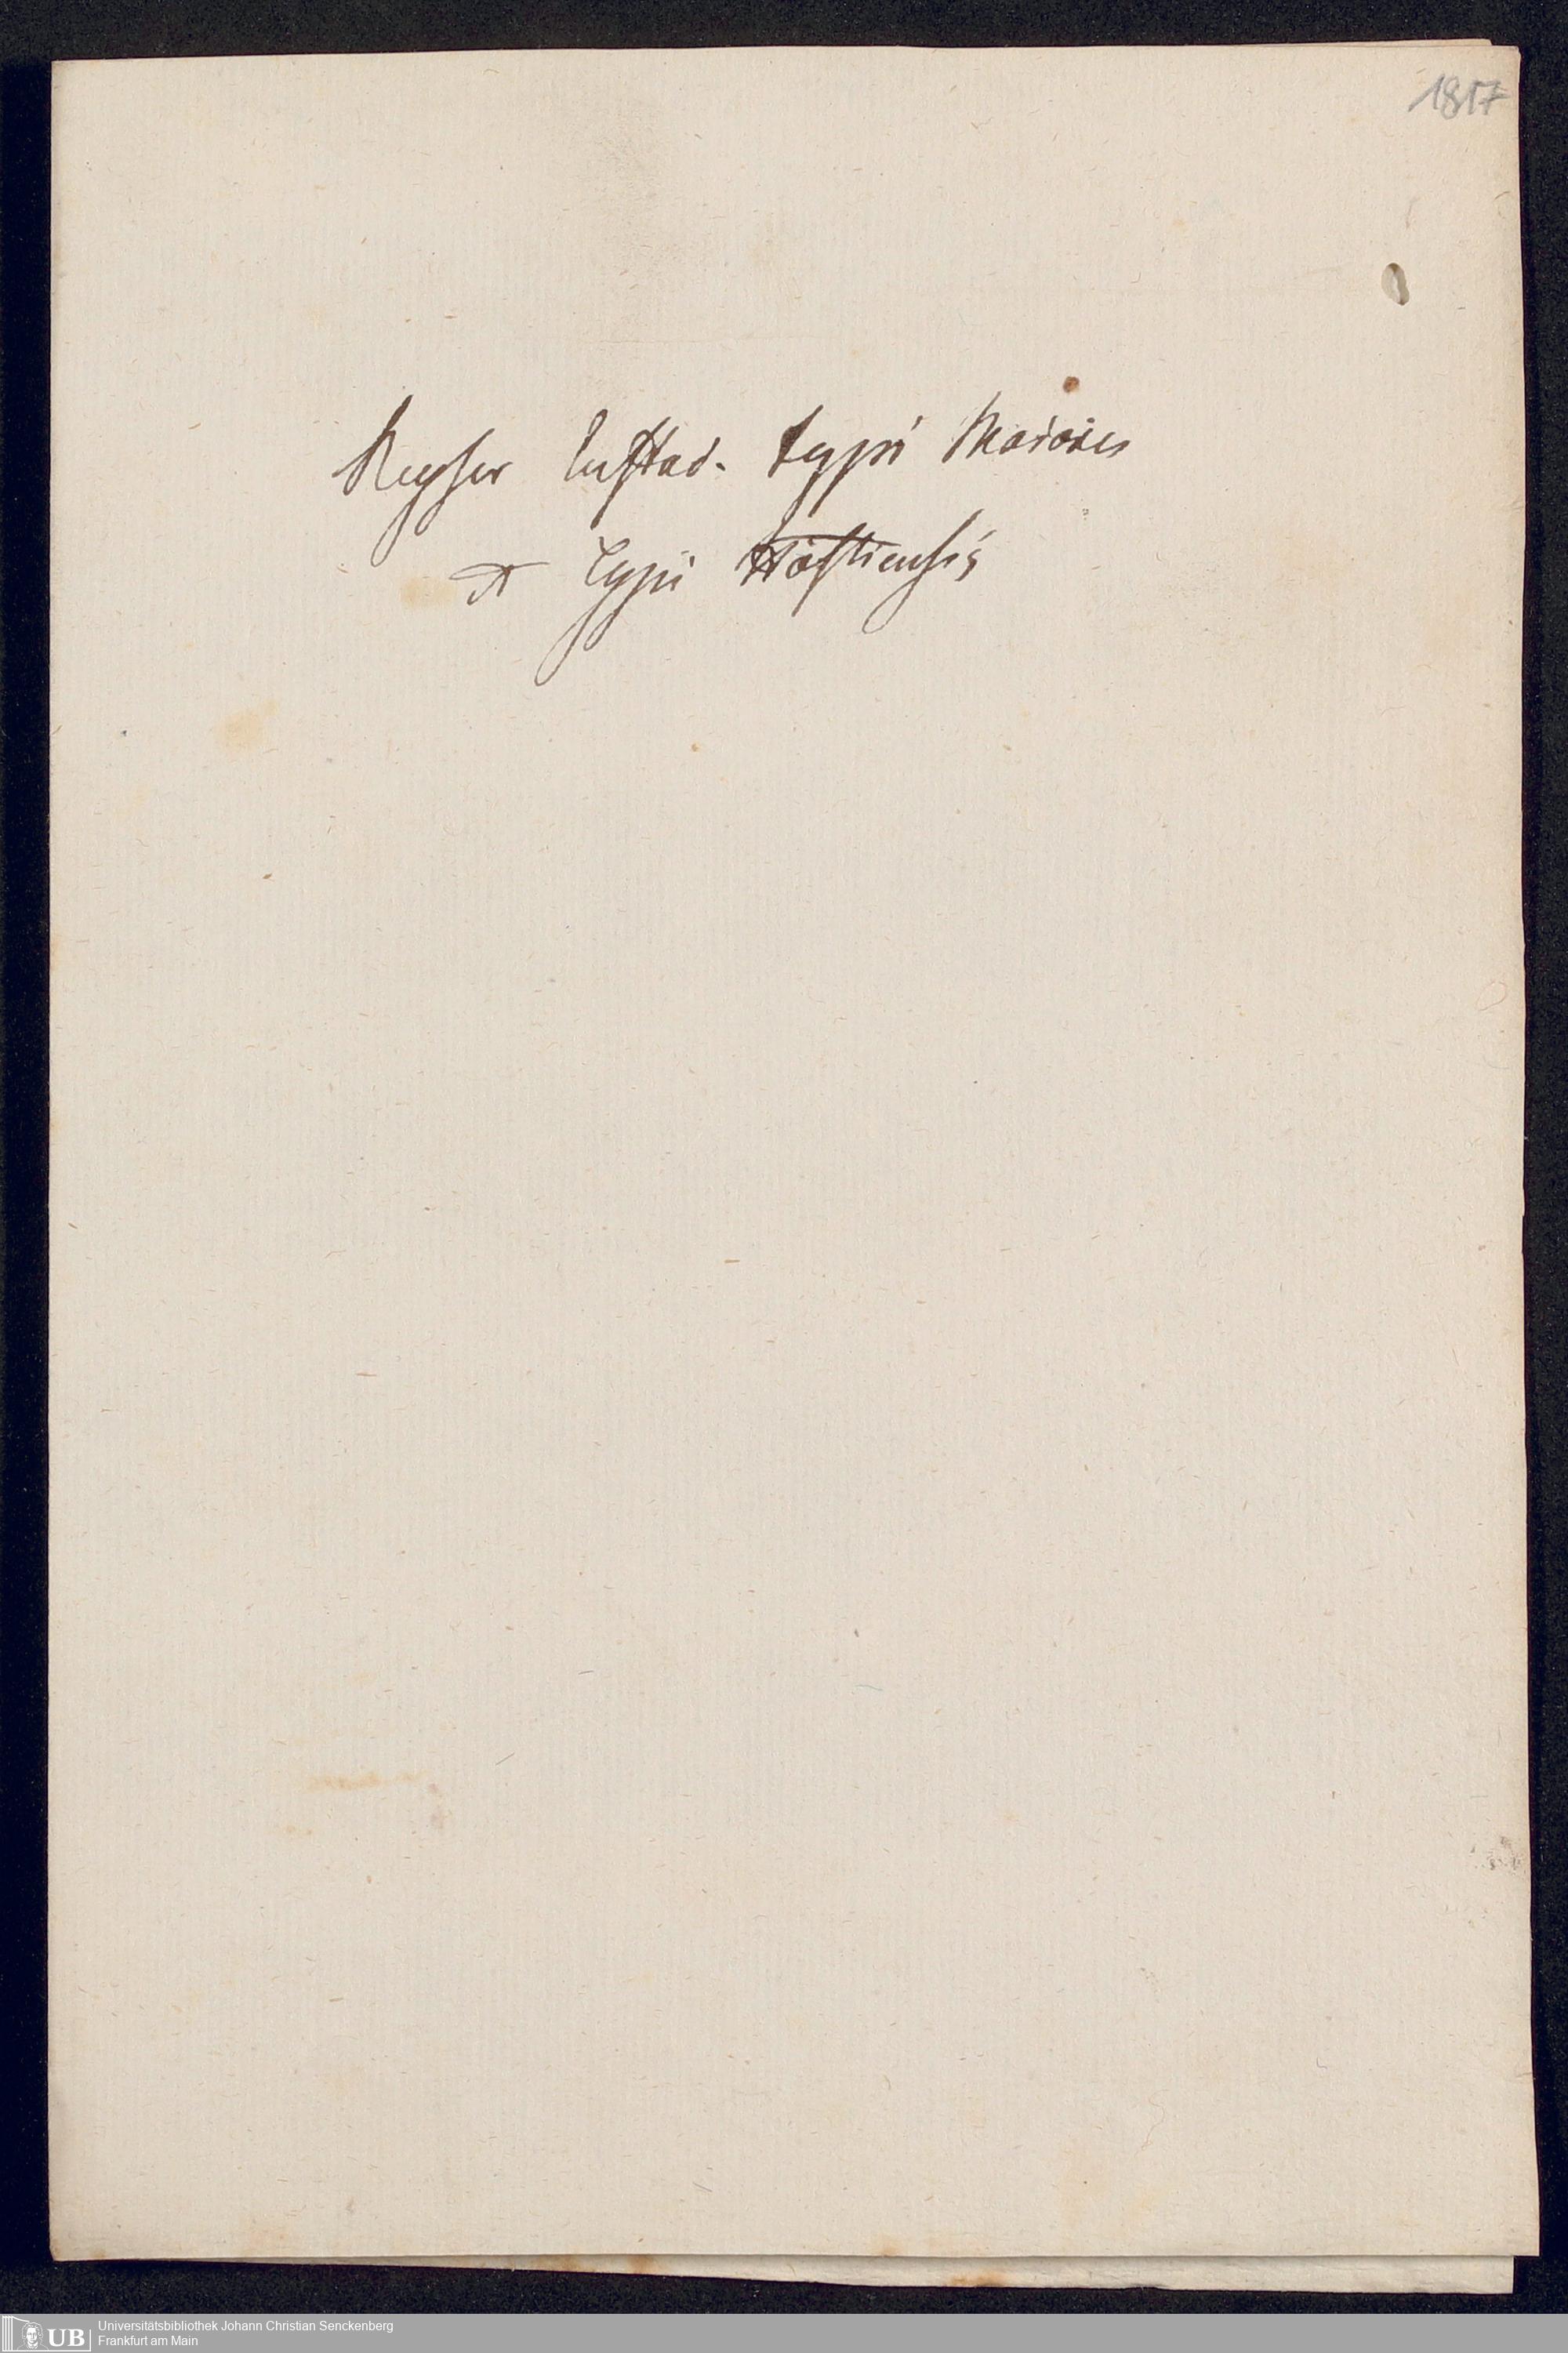 1817
Reyser Eustad. typi Maiores
et typi Hostiensis
UB
Universitätsbibliothek Johann Christian Senckenberg
Frankfurt am Main